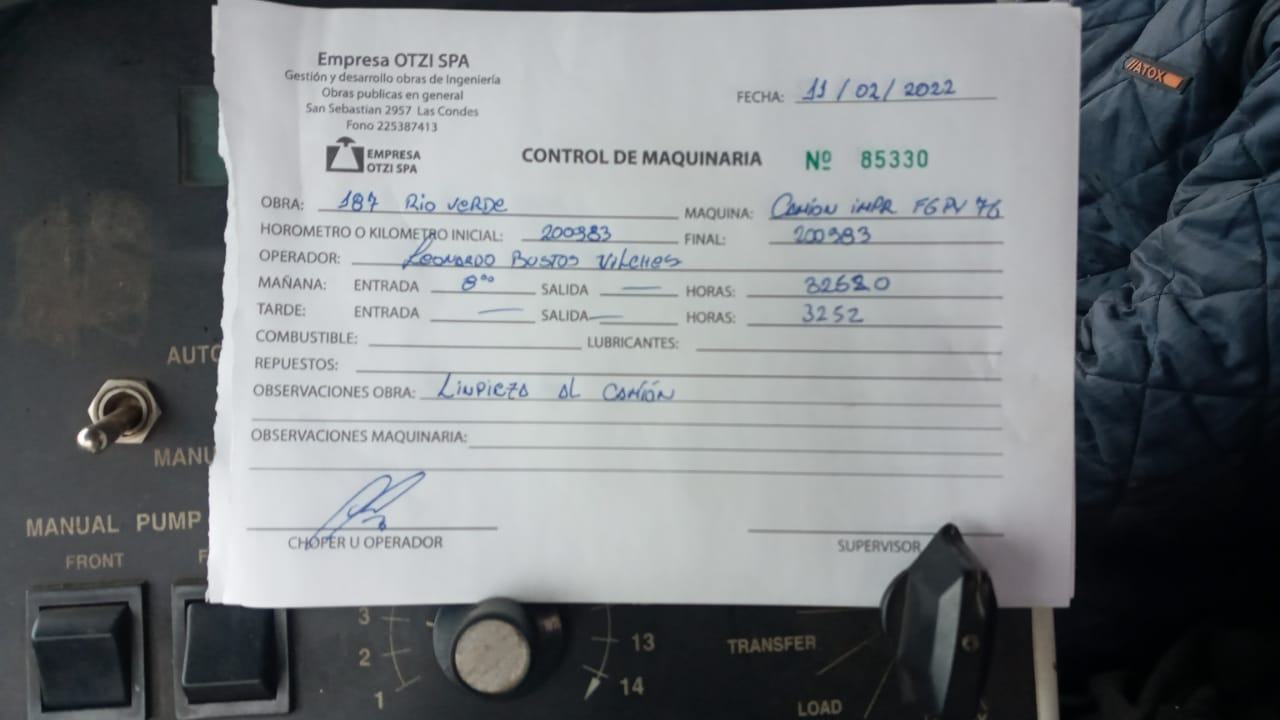 Empresa OTZI SPA
Gestión y desarrollo obras de Ingeniería
Obras publicas en general
San Sebastian 2957 Las Condes
Fono 225387413
EMPRESA
OTZI SPA
FECHA: 11/02/2022
CONTROL DE MAQUINARIA Nº 85330
OBRA: 187 Rio VERDE MAQUINA: Camión impr FGPV 76
HOROMETRO O KILOMETRO INICIAL: 200983 FINAL: 200983
OPERADOR: Leonardo Bustos Vilches
MAÑANA: ENTRADA 8°° SALIDA — HORAS:
TARDE: ENTRADA — SALIDA — HORAS: 3252
COMBUSTIBLE: LUBRICANTES:
REPUESTOS:
OBSERVACIONES OBRA: Limpieza al Camión
OBSERVACIONES MAQUINARIA:
CHOFER U OPERADOR
SUPERVISOR
//ATOX
AUTO
MANU
MANUAL PUMP
FRONT
3
2
1
13
14
TRANSFER
LOAD